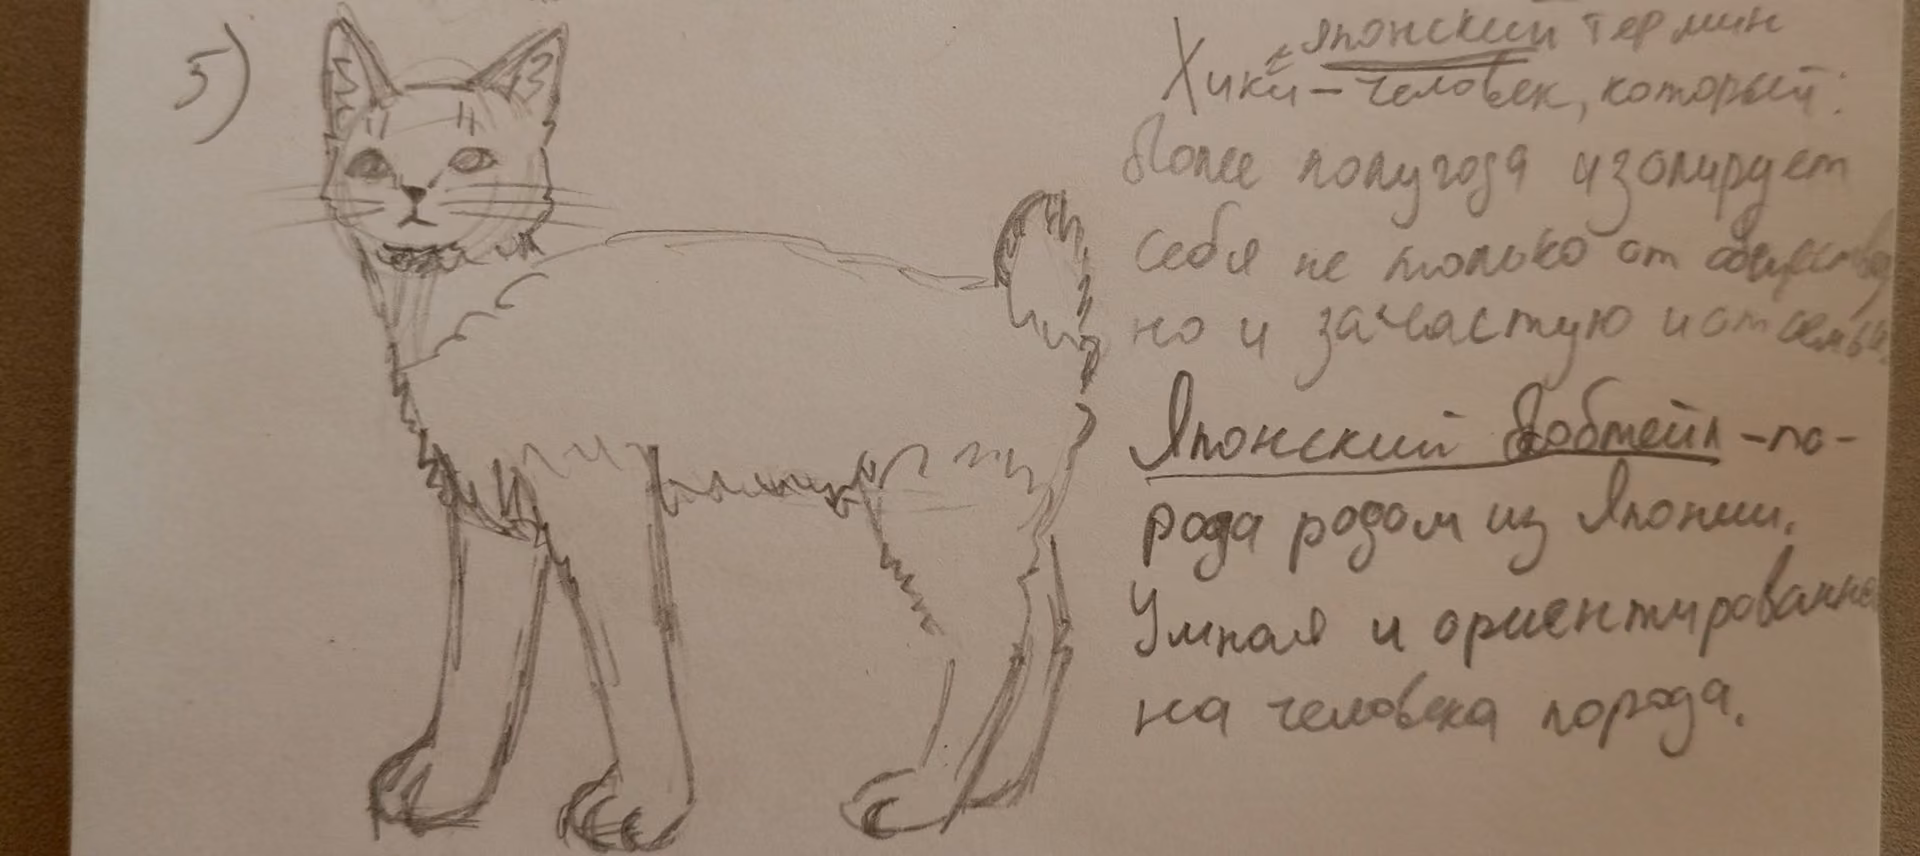 5)
← японский термин
Хики – человек, который:
более полугода изолирует
себя не только от общества
но и зачастую и от семьи.
Японский бобтейл – по-
рода родом из Японии.
Умная и ориентированна
на человека порода.